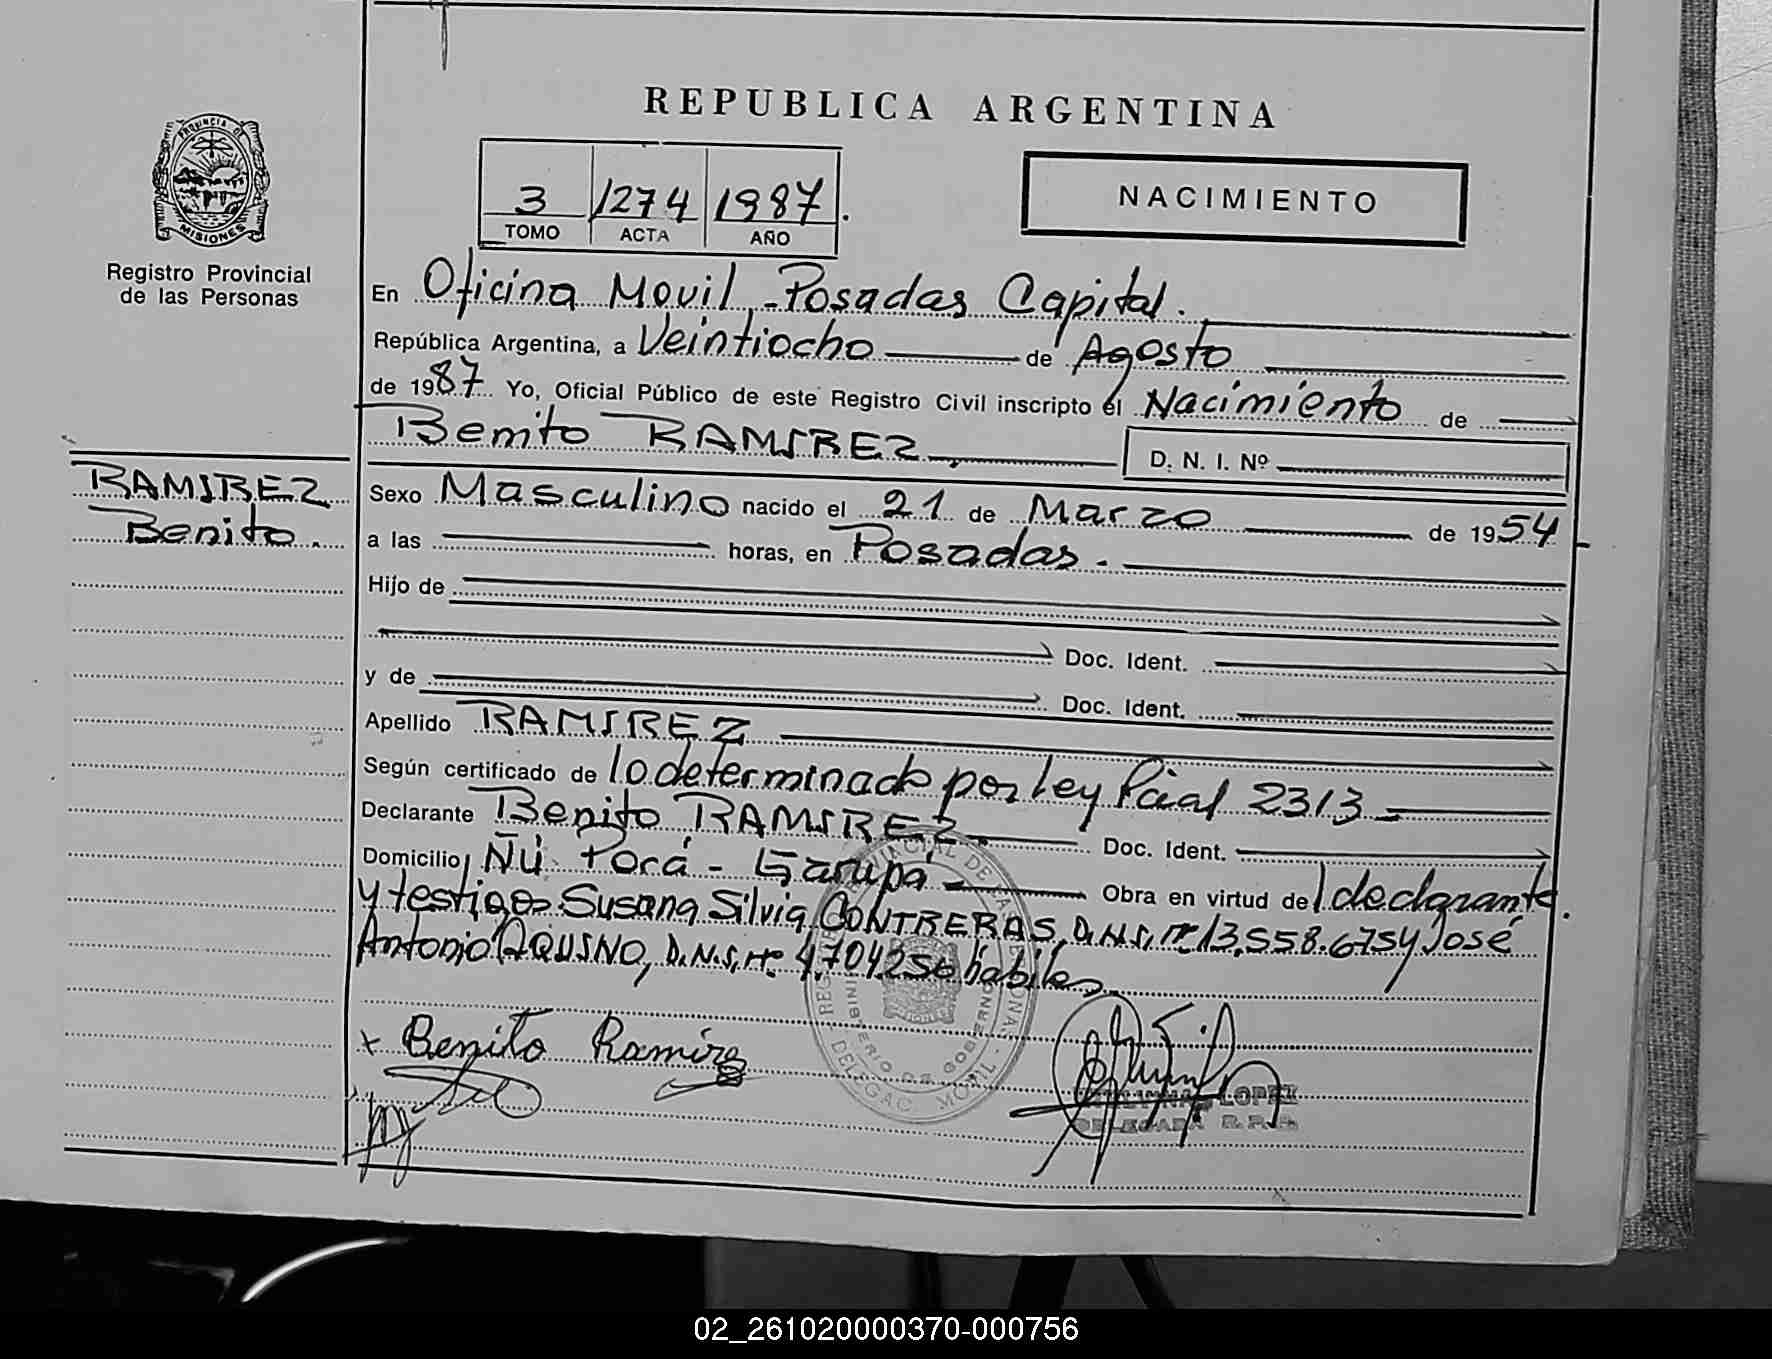 REPUBLICA ARGENTINA
PROVINCIA DE
MISIONES
Registro Provincial
de las Personas
3 1274 1987.
TOMO ACTA AÑO
NACIMIENTO
En Oficina Movil - Posadas Capital.
República Argentina, a Veintiocho de Agosto
de 1987 Yo, Oficial Público de este Registro Civil inscripto el Nacimiento de
Benito RAMIREZ D. N. I. Nº
RAMIREZ
Benito.
Sexo Masculino nacido el 21 de Marzo de 1954
a las horas, en Posadas.
Hijo de
Doc. Ident.
y de Doc. Ident.
Apellido RAMIREZ
Según certificado de lo determinado por ley Pcial 2313
Declarante Benito RAMIREZ Doc. Ident.
Domicilio Ñú Porá - Garupá Obra en virtud de l declarante
y testigos Susana Silvia CONTRERAS, D.N.I. nº 13.558.675 y José
Antonio AQUINO, D.N.I. nº 4.704256 habiles.
x Benito Ramirez
MINISTERIO DE GOBIERNO
DELEGAC. MOVIL
LOPEZ
DELEGADA R.P.P.
02_261020000370-000756